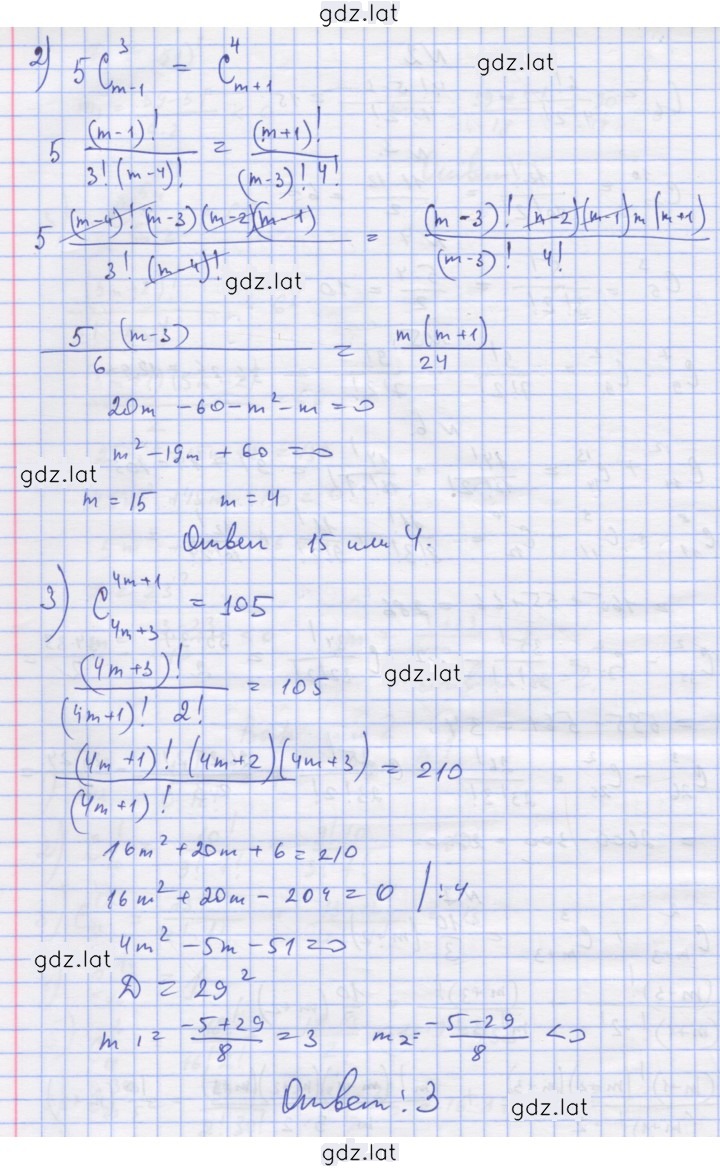 gdz.lat
2) 5 C³ₘ₋₁ = C⁴ₘ₊₁
gdz.lat
5 (m-1)! / 3!(m-4)! = (m+1)! / (m-3)! 4!
5 (m-4)! (m-3)(m-2)(m-1) / 3! (m-4)! = (m-3)! (m-2)(m-1) m (m+1) / (m-3)! 4!
gdz.lat
5 (m-3) / 6 = m (m+1) / 24
20m - 60 - m² - m = 0
m² - 19m + 60 = 0
gdz.lat
m = 15 m = 4
Ответ 15 или 4.
3) C⁴ᵐ⁺¹₄ₘ₊₃ = 105
(4m+3)! / (4m+1)! 2! = 105
gdz.lat
(4m+1)! (4m+2)(4m+3) / (4m+1)! = 210
16m² + 20m + 6 = 210
16m² + 20m - 204 = 0 / : 4
4m² - 5m - 51 = 0
gdz.lat
D = 29²
m₁ = -5+29 / 8 = 3 m₂ = -5-29 / 8 < 0
Ответ: 3
gdz.lat
gdz.lat